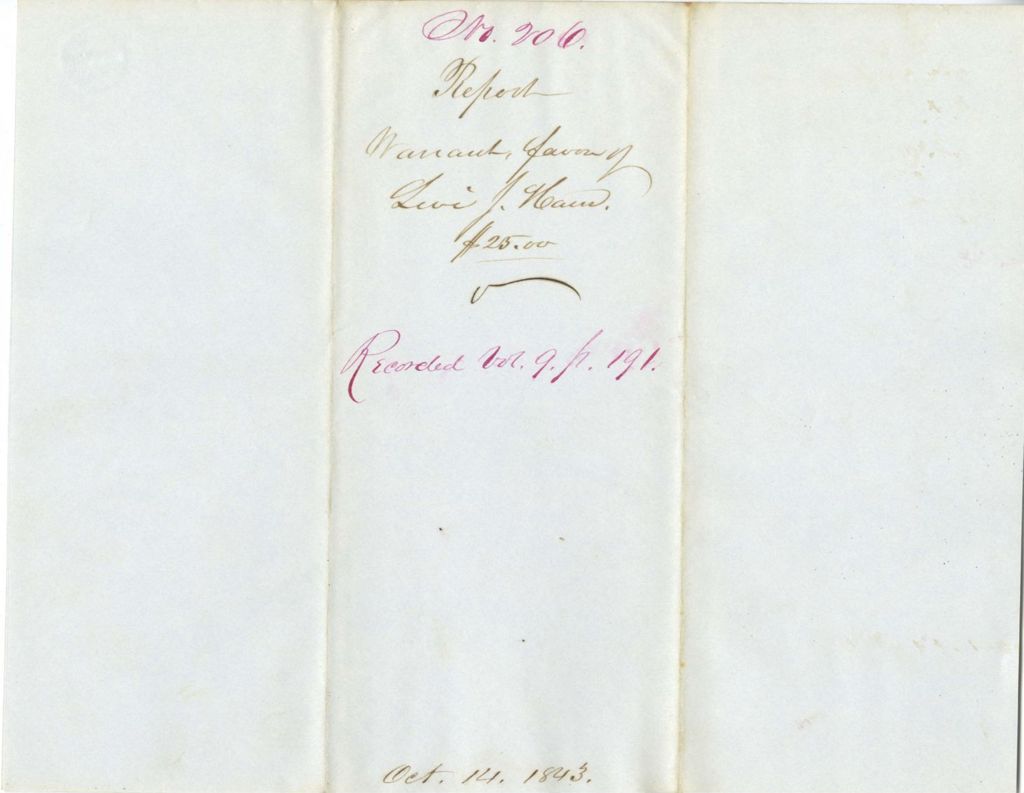 No. 206.
Report
Warrant, favor of
Levi J. Ham.
$25.00
Recorded Vol. 9. p. 191.
Oct. 14. 1843.